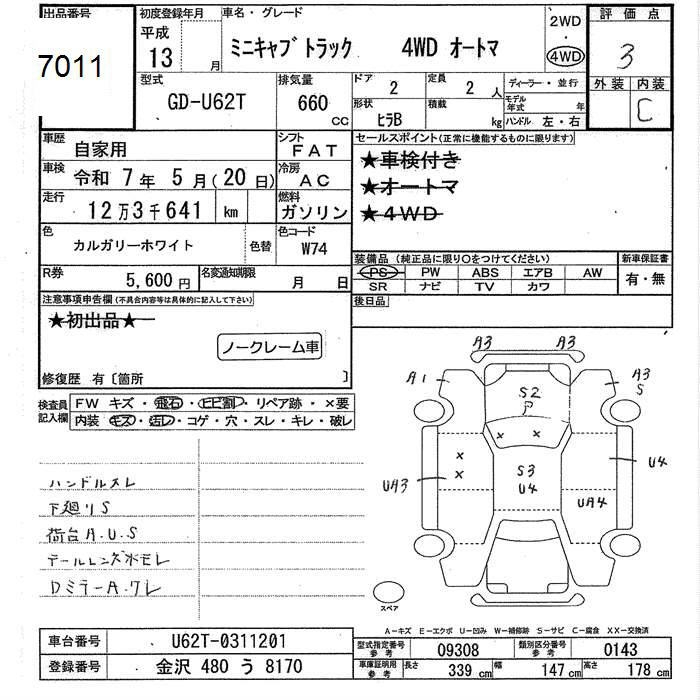 出品番号 初度登録年月 車名・グレード 2WD 評価点
7011 平成 13 月 ミニキャブトラック 4WD オートマ 4WD 3
型式 排気量 ドア 2 定員 2 人 ディーラー・並行 外装 内装
GD-U62T 660 CC 形状 ヒラB 積載 kg モデル年式 年 C
ハンドル 左・右
車歴 自家用 シフト FAT セールスポイント(正常に機能するものに限ります)
車検 令和 7 年 5 月(20 日) 冷房 AC ★車検付き
★オートマ
走行 12万3千641 km 燃料 ガソリン ★4WD
色 カルガリーホワイト 色替 色コード W74
装備品(純正品に限り〇をつけてください) 新車保証書
PS PW ABS エアB AW 有・無
SR ナビ TV カワ
R券 5,600円 名変通知期限 月 日
後日品
注意事項申告欄(不具合内容等は具体的に記入して下さい)
★初出品★
ノークレーム車
修復歴 有〔箇所 〕
検査員記入欄 FW キズ・飛石・ヒビ割・リペア跡・×要
内装 キズ・汚レ・コゲ・穴・スレ・キレ・破レ
ハンドルスレ
下廻りS
荷台A.U.S
テールレンズ水モレ
DミラーA.ワレ
A3 A3
A1 A3
S
S2
P
× ×
×
×
UA3 S3 U4
U4 UA4
スペア
A－キズ E－エクボ U－凹み W－補修跡 S－サビ C－腐食 XX－交換済
車台番号 U62T-0311201 型式指定番号 参考 09308 類別区分番号 参考 0143
登録番号 金沢 480 う 8170 車庫証明用 参考 長さ 339 cm 幅 147 cm 高さ 178 cm